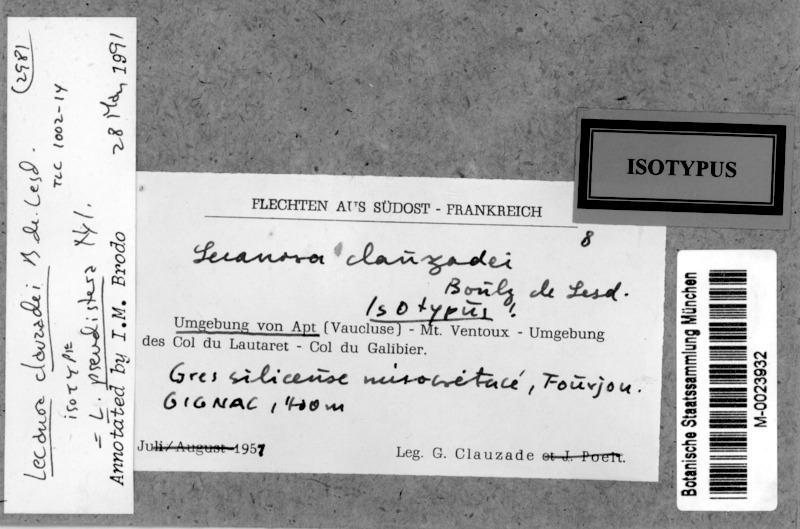 Lecanora clauzadei B. de Lesd. (2981
ISOTYPE TLC 1002-14
= L. pseudistera Nyl.
Annotated by I.M. Brodo 28 May 1991
ISOTYPUS
FLECHTEN AUS SÜDOST - FRANKREICH
8
Lecanora clauzadei
Bouly de Lesd.
Isotypus!
Umgebung von Apt (Vaucluse) - Mt. Ventoux - Umgebung
des Col du Lautaret - Col du Galibier.
Gres siliceuse mésocrétacé, Fourjou.
GIGNAC, 400m
Juli/August 1957 Leg. G. Clauzade et J. Poelt.
Botanische Staatssammlung München
M-0023932